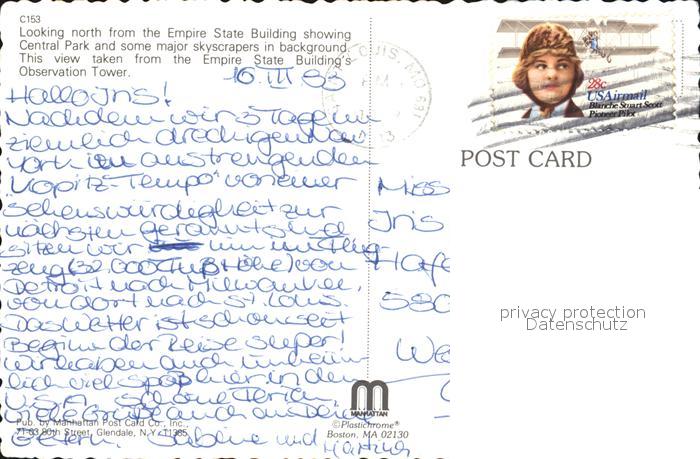 C153
Looking north from the Empire State Building showing
Central Park and some major skyscrapers in background.
This view taken from the Empire State Building's
Observation Tower.
Hallo Iris!
Nachdem wir 3 Tage im
ziemlich dreckigen New
York im anstrengenden
"Kopitz-Tempo" von einer
Sehenswürdigkeit zur
nächsten gerannt sind
sitzen wir nun im Flug-
zeug (32.000 Fuß Höhe) von
Detroit nach Milwaukee,
von dort nach St. Louis.
Das Wetter ist schon seit
Beginn der Reise super!
Wir haben auch unheim-
lich viel Spaß hier in den
U.S.A. Schöne Ferien,
viele Grüße auch an Deine
Eltern. Sabine und
Pub. by Manhattan Post Card Co., Inc.,
71-63 80th Street, Glendale, N.Y. 11385
MANHATTAN
©Plastichrome®
Boston, MA 02130
28c
USAirmail
Blanche Stuart Scott
Pioneer Pilot
POST CARD
Miss
Iris
580
privacy protection
Datenschutz